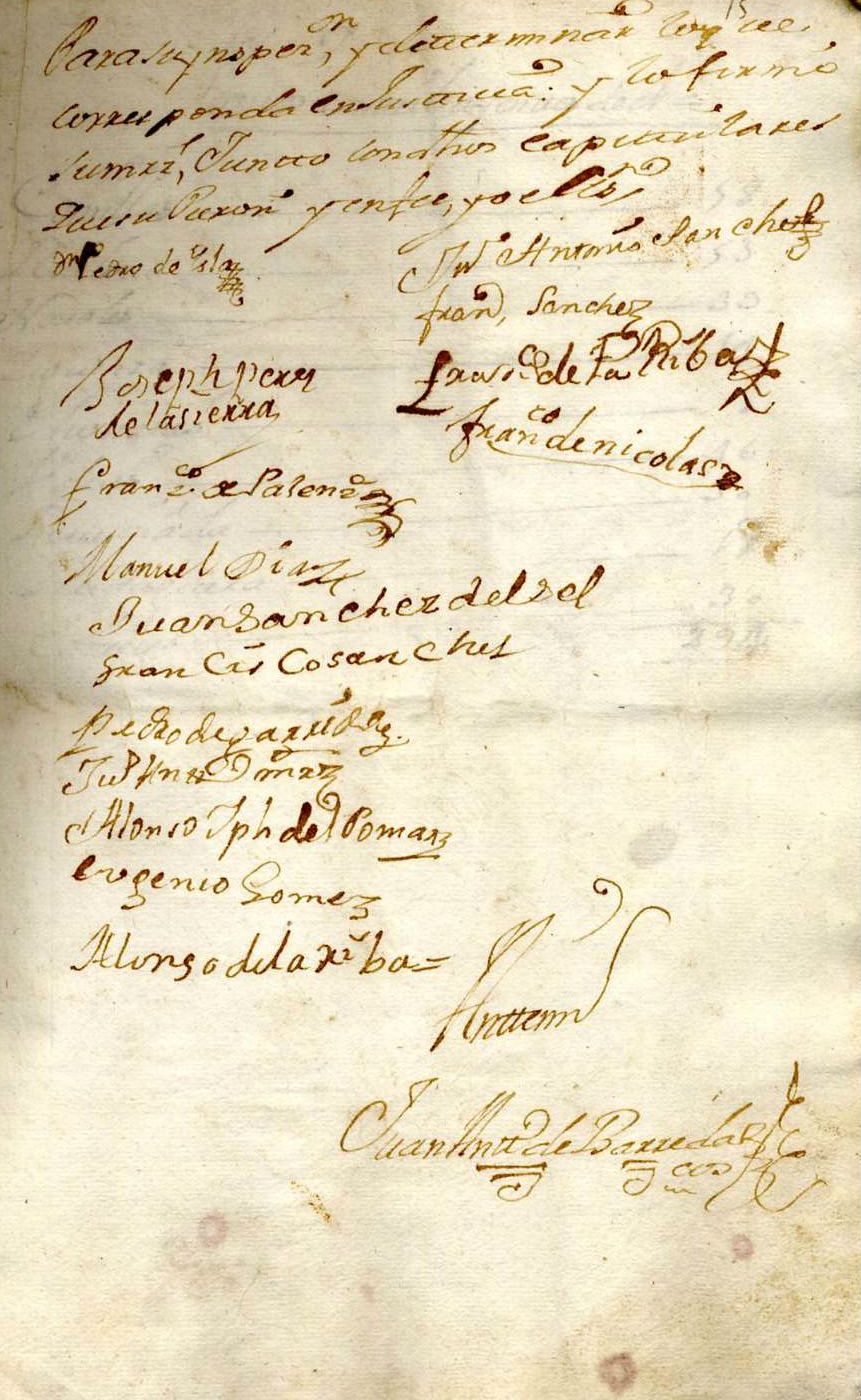 15
Para su ynspez.on, y determinar lo q.e
corresponda en Justicia: y lo firmó
su mrz.d, Juntto con dhos capitulares
que supieron y en fee, yo el ess.no
Dn Pedro de Isla
Ju.o Antonio Sanchez
fran.co Sanchez
Joseph perez
de la sierra
fran.co de la Riba
fran.co de nicolas
Franz.co de Palenz.a
Manuel Diaz
Juan Sanchez del sel
fran Cis Co san Chez
Pedro de
Ju.o Antt.o Dmrz
Alonso Jph del Pomar
eugenio Gomez
Alonso de la riba =
Anttemi
Juan Antt.o de Barreda